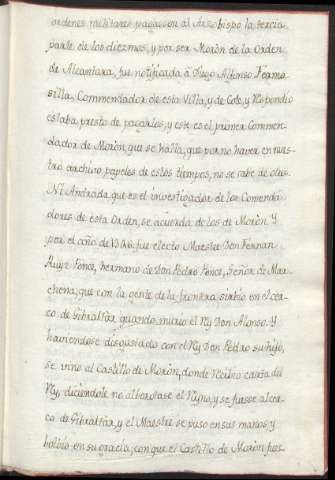 ordenes militares pagasen al Arzobispo la tercia
parte de los diezmos, y por ser Moròn de la Orden
de Alcantara, fue notificada à Diego Alfonso Fermo-
silla, Commendador de esta Villa, y de Cote, y respondio
estaba presto de pagarles; y este es el primer Commen-
dador de Moròn, que se halla, que por no haver en nues-
tro archivo papeles de estos tiempos, no se sabe de otros
Ni Andrada, que es el investigador de los Comenda-
dores de esta Orden, se acuerda de los de Moròn Y
por el año de fue electo Maestre Don Fernan
Ruyz Ponce, hermano de Don Pedro Ponce, Señor de Mar-
chena, que con la gente de la frontera sirbio en el cer-
co de Gibraltàr, quando murio el Rey Don Alonso. Y
haviendose desgustado con el Rey Don Pedro su hijo,
se vino al Castillo de Moròn, donde recibio carta del
Rey, diciendole no alborotase el Reyno, y se fuesse al cer-
co de Gibraltàr, y el Maestre se puso en sus manos, y
bolbio en su gracia, con que el Castillo de Moròn fue